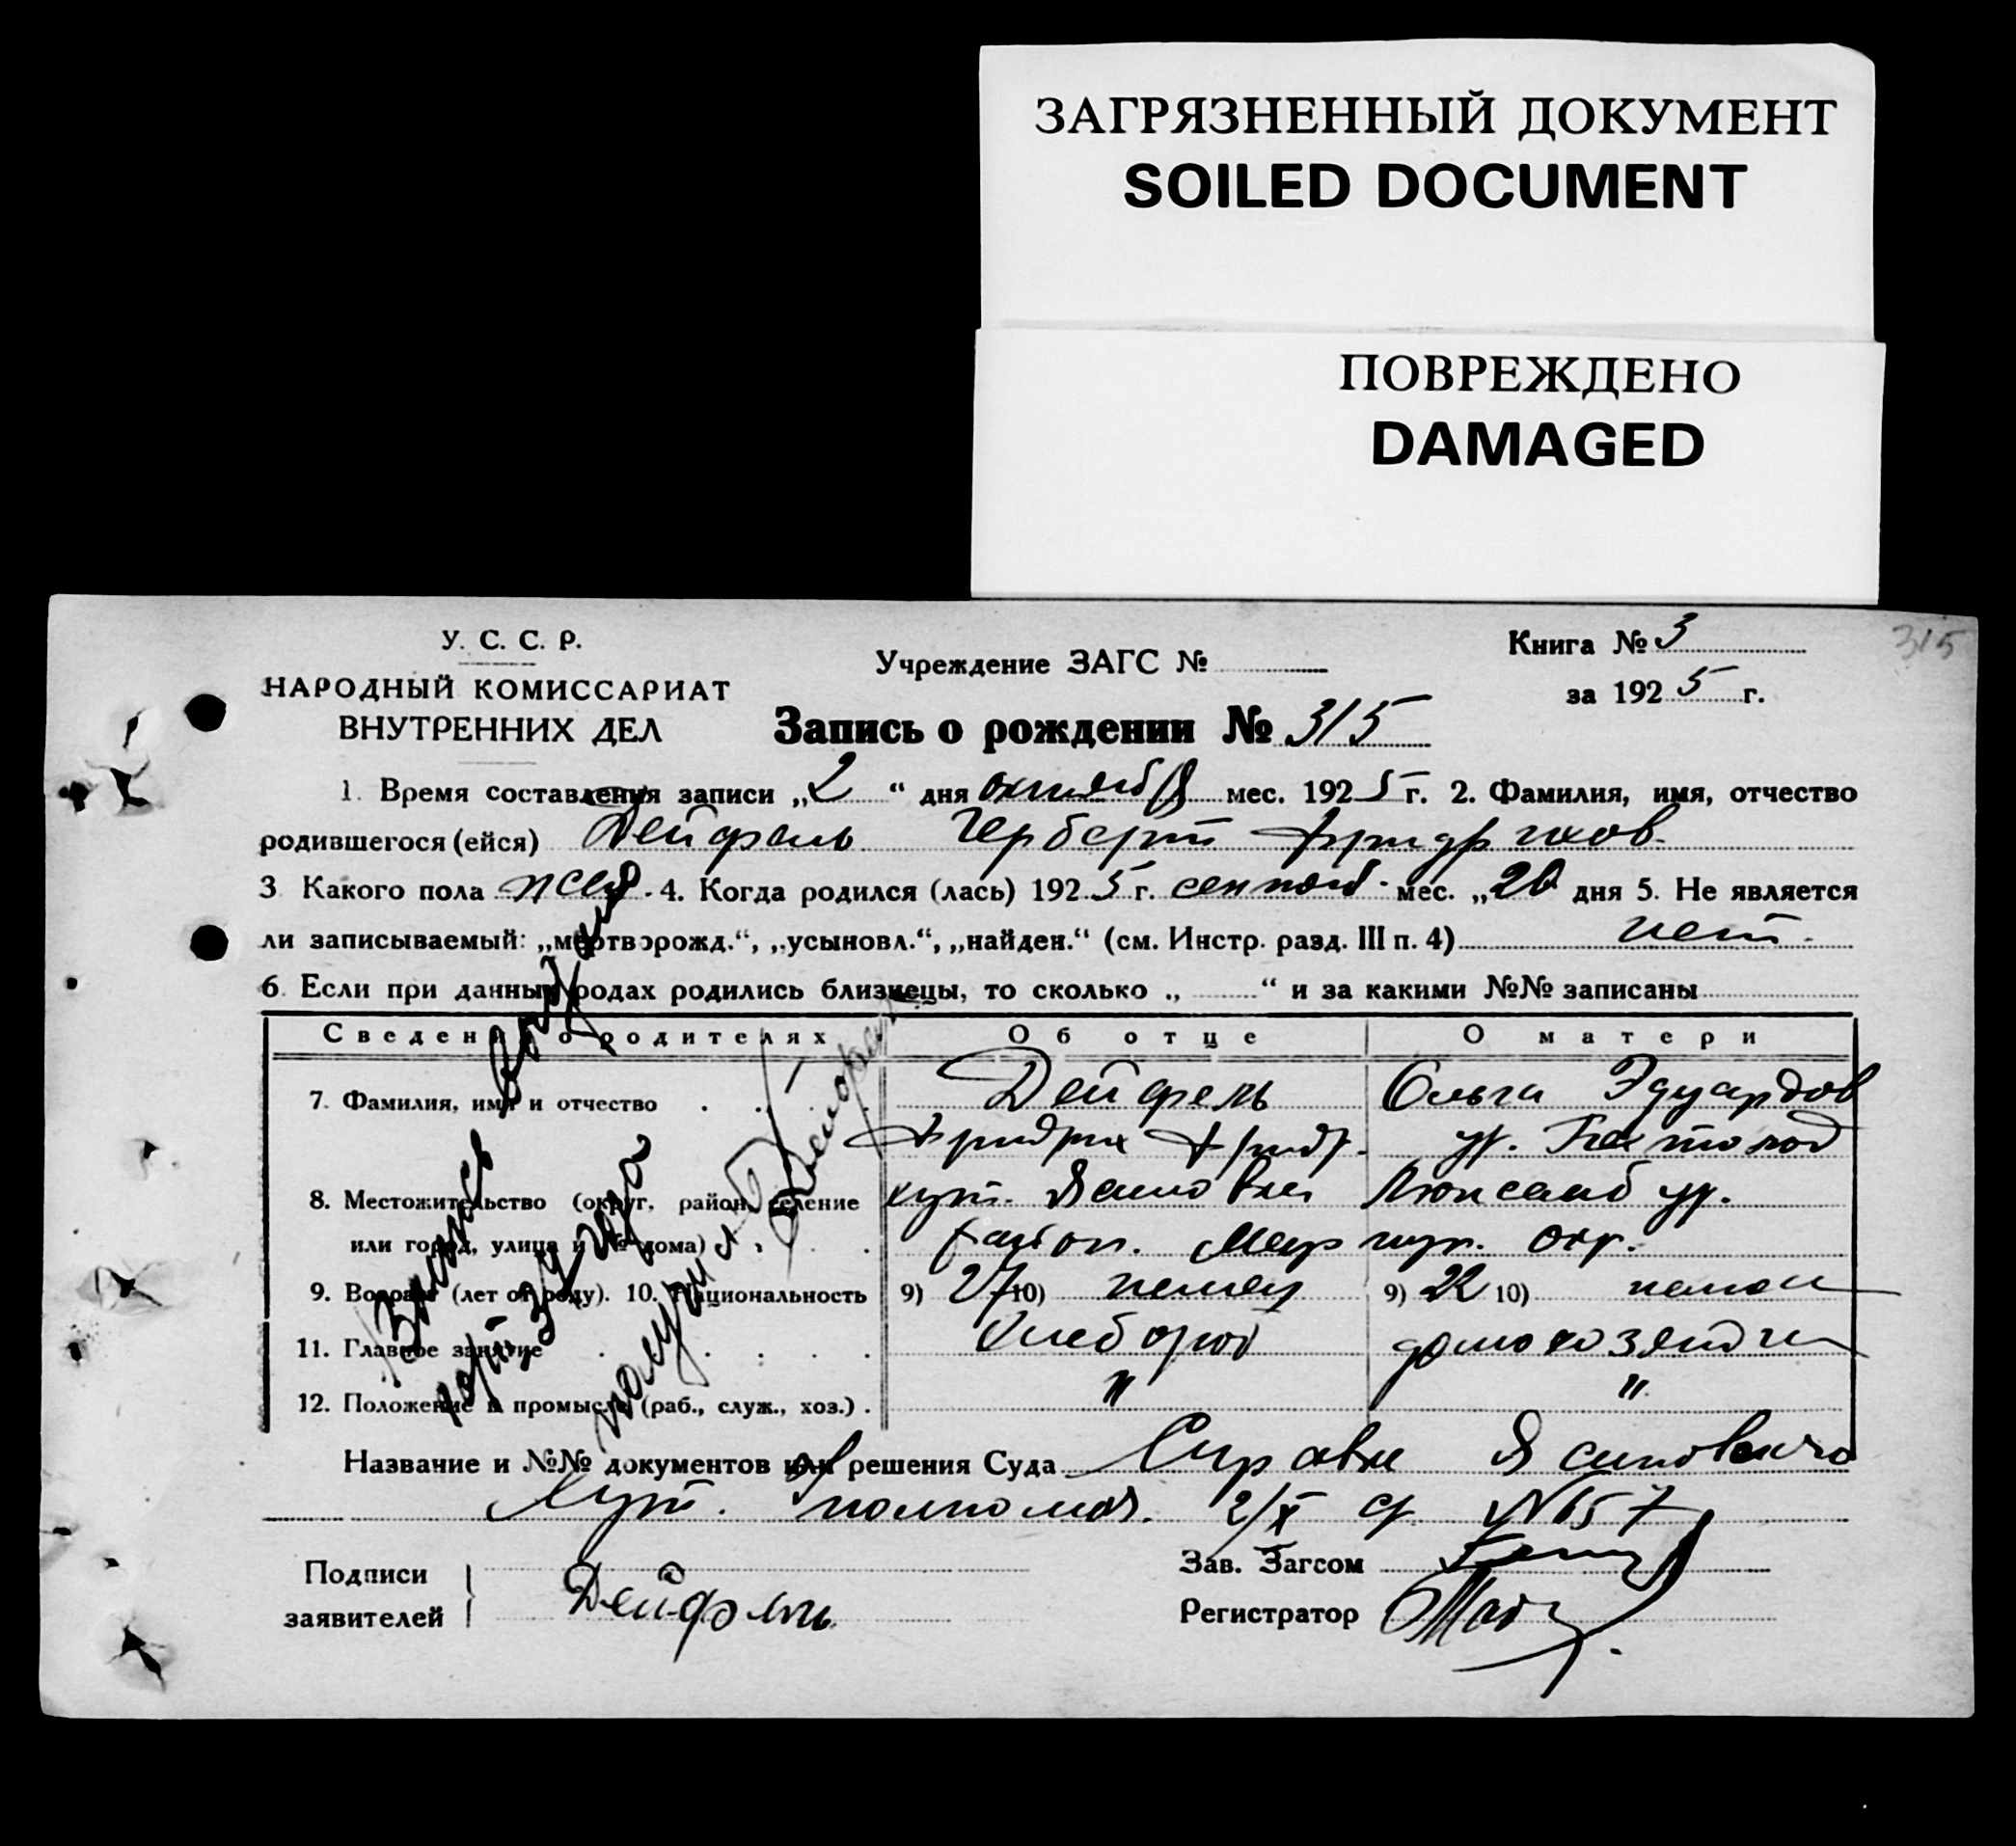 ЗАГРЯЗНЕННЫЙ ДОКУМЕНТ
SOILED DOCUMENT
ПОВРЕЖДЕНО
DAMAGED
У. С. С. Р.
НАРОДНЫЙ КОМИССАРИАТ
ВНУТРЕННИХ ДЕЛ
Учреждение ЗАГС №
Книга № 3
315
за 1925 г.
Запись о рождении № 315
1. Время составления записи „2“ дня октября мес. 1925 г. 2. Фамилия, имя, отчество
родившегося (ейся) Дейфель Герберт Фридрихов.
3 Какого пола 4. Когда родился (лась) 1925 г. сентяб. мес. „20 дня 5. Не является
ли записываемый: „мертворожд.“, „усыновл.“, „найден.“ (см. Инстр. разд. III п. 4) нет.
6. Если при данных родах родились близнецы, то сколько „ “ и за какими №№ записаны
Сведения о родителях Об отце О матери
7. Фамилия, имя и отчество Дейфель Ольга Эдуардов
Фридрих Фридр. ур.
8. Местожительство (округ, район, селение хут. Люксембург.
или город, улица и № дома) район. окр.
9. Возраст (лет от роду). 10. Национальность 9) 27 10) немец 9) 22 10) немк
11. Главное занятие Хлебороб домохозяйка
12. Положение в промысле (раб., служ., хоз.) . " "
Название и №№ документов или решения Суда Справка
Хут. 2/X с/г. № 657
Подписи
заявителей
Дейфель
Зав. Загсом
Регистратор